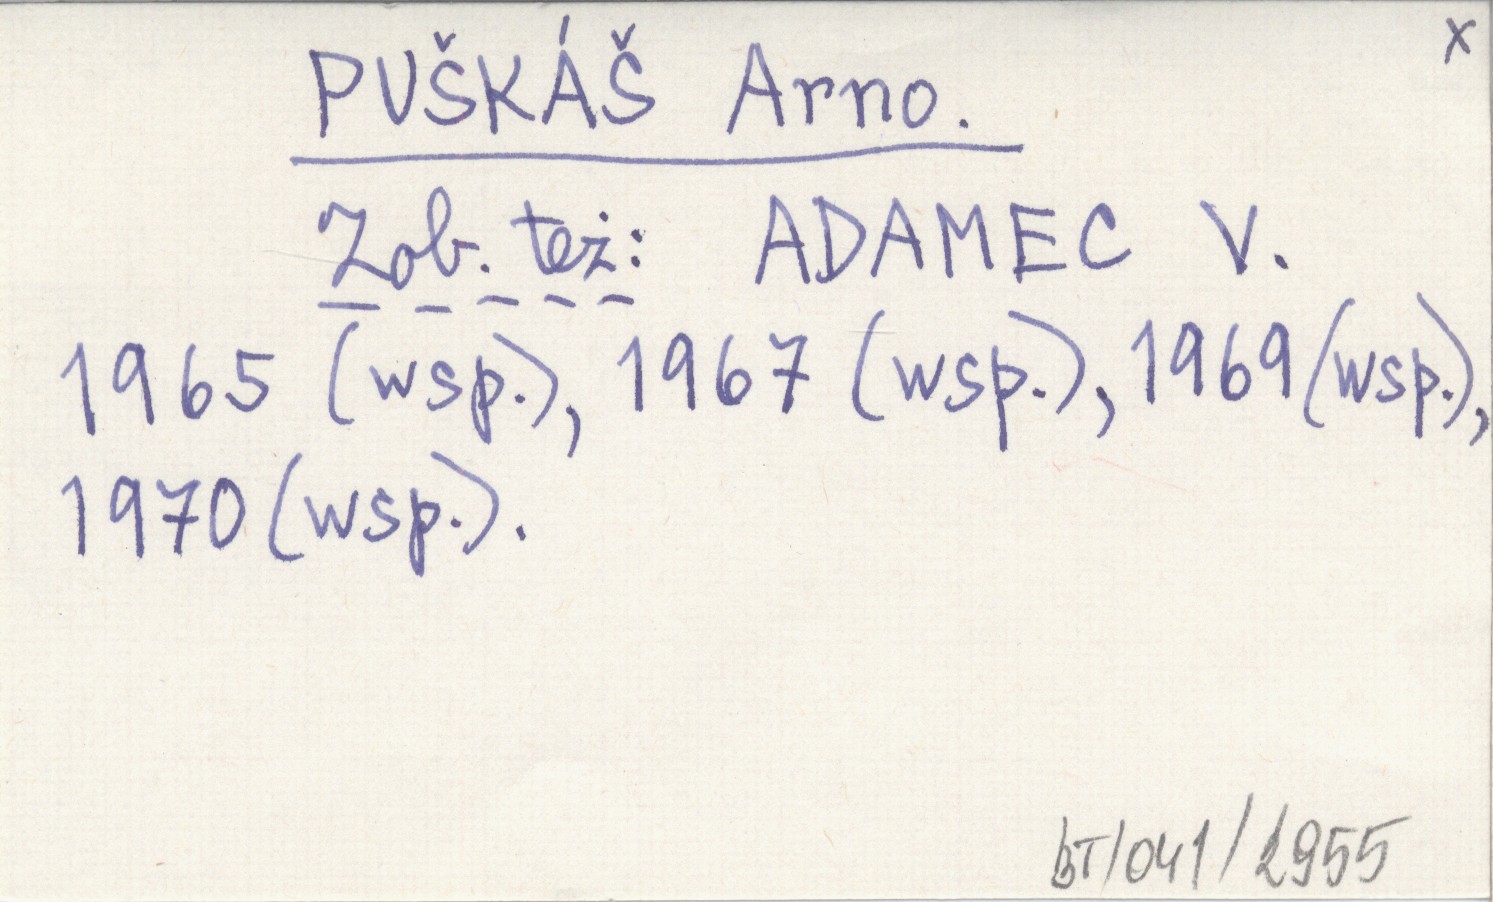 x
PUŠKÁŠ Arno.
Zob. też: ADAMEC V.
1965 (wsp.), 1967 (wsp.), 1969 (wsp.),
1970 (wsp.).
BT/041/2955